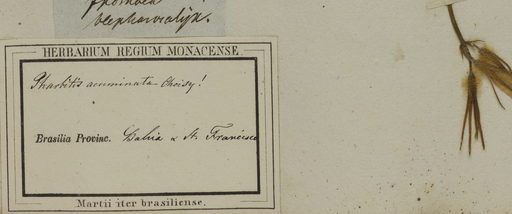 Ipomoea
blepharosalyx.
HERBARIUM REGIUM MONACENSE
Pharbitis acuminata Choisy!
Brasilia Provinc. Bahia & St. Francisco
Martii iter brasiliense.